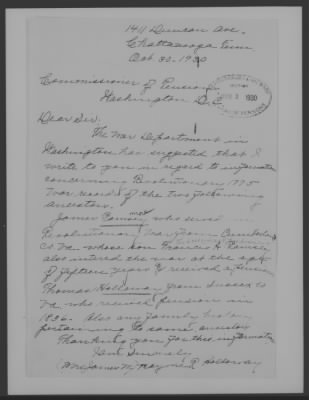 1411 Duncan Ave.
Chattanooga Tenn
Oct 30. 1930
Commissioner of Pensions
Washington D.C.
1930
Dear Sir:
The War Department in
Washington has suggested that I
write to you in regard to information
concerning Revolutionary 1775
War record of the two following
ancestors.
James Ramsey who served in
Revolutionary War from Cumberland
Co Va whose son Francis H Ramsey
also entered the war at the age
of fifteen years & received a pension
Thomas Holloway from Sussex Co
Va who received pension in
1836. Also any family history
pertaining to same ancestors
Thanking you for this information
Yours Sincerely
Mrs James M. Holloway